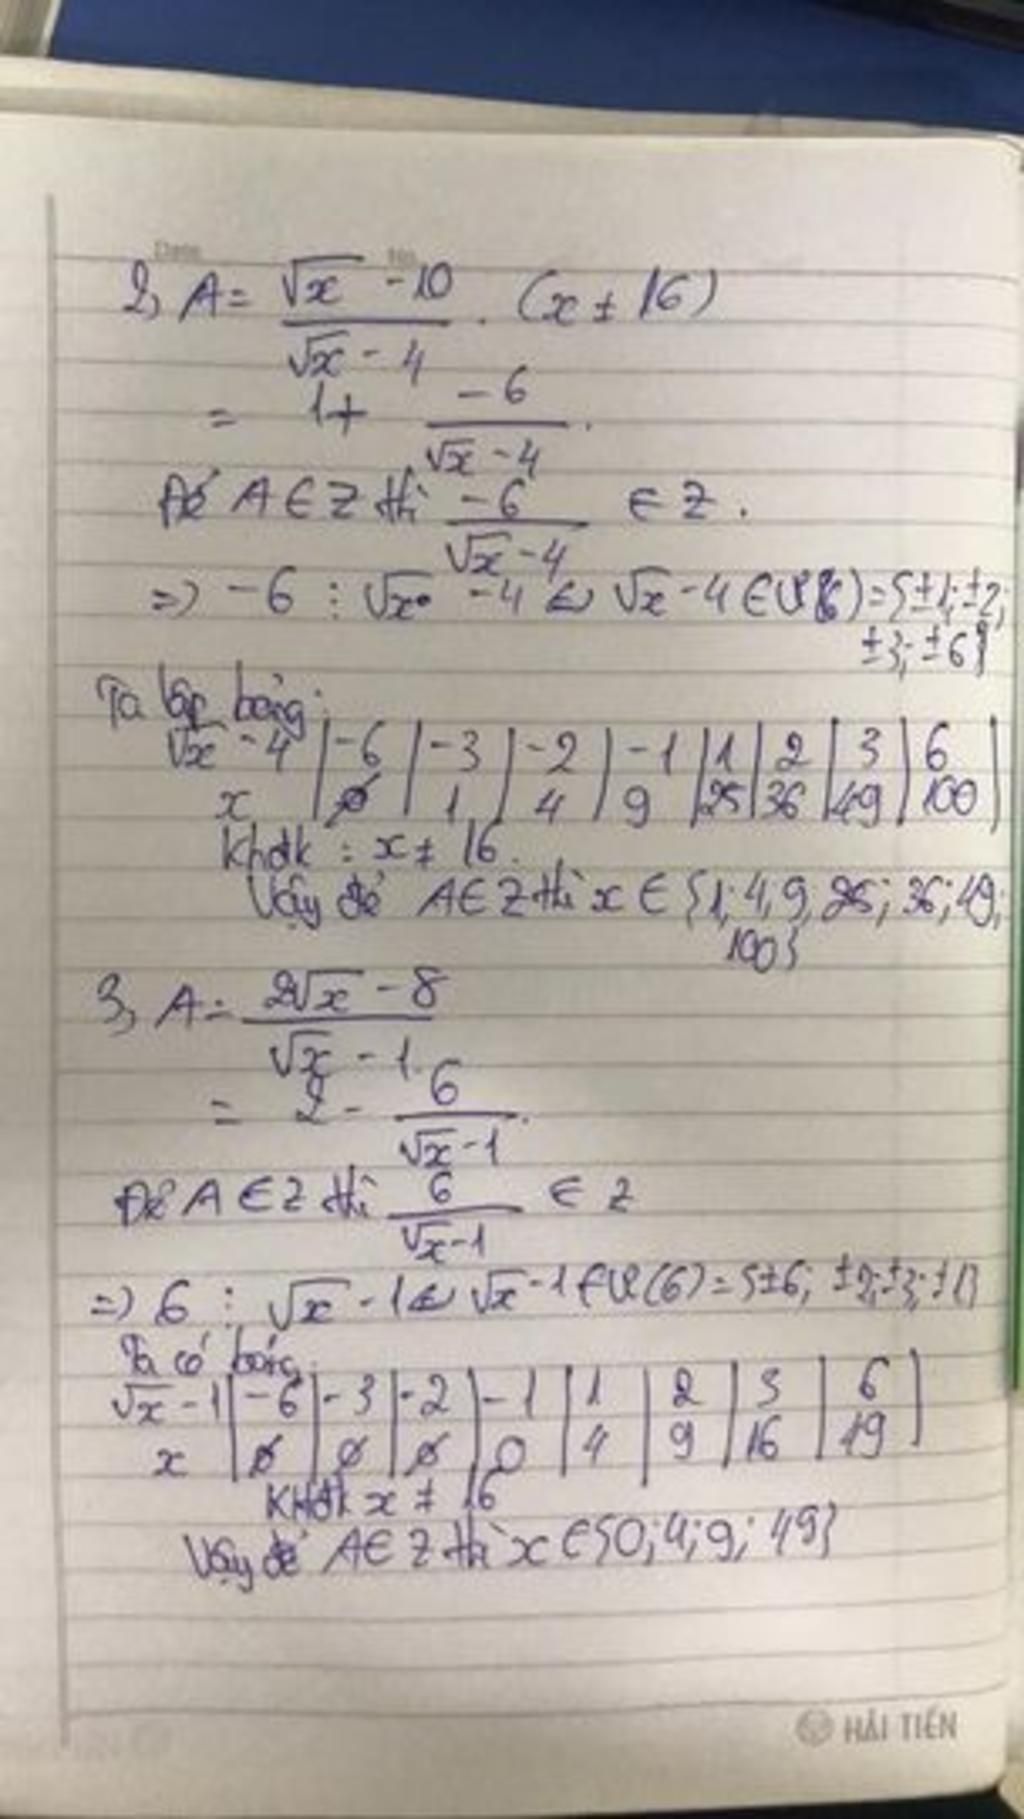 Date No.
2, A = (√x - 10)/(√x - 4) . (x ≠ 16)
= 1 + (-6)/(√x - 4) .
Để A ∈ Z thì (-6)/(√x - 4) ∈ Z .
=> -6 ⋮ √x - 4 <=> √x - 4 ∈ Ư(6) = {±1; ±2;
±3; ±6}
Ta lập bảng:
√x - 4 | -6 | -3 | -2 | -1 | 1 | 2 | 3 | 6 |
x | ∅ | 1 | 4 | 9 | 25 | 36 | 49 | 100 |
KHĐK : x ≠ 16.
Vậy để A ∈ Z thì x ∈ {1; 4; 9; 25; 36; 49;
100}
3, A = (2√x - 8)/(√x - 1)
= 2 - 6/(√x - 1) .
Để A ∈ Z thì 6/(√x - 1) ∈ Z
=> 6 ⋮ √x - 1 <=> √x - 1 ∈ Ư(6) = {±6; ±2; ±3; ±1}
Ta có bảng:
√x - 1 | -6 | -3 | -2 | -1 | 1 | 2 | 3 | 6 |
x | ∅ | ∅ | ∅ | 0 | 4 | 9 | 16 | 49 |
KHĐK x ≠ 16
Vậy để A ∈ Z thì x ∈ {0; 4; 9; 49}
HẢI TIẾN